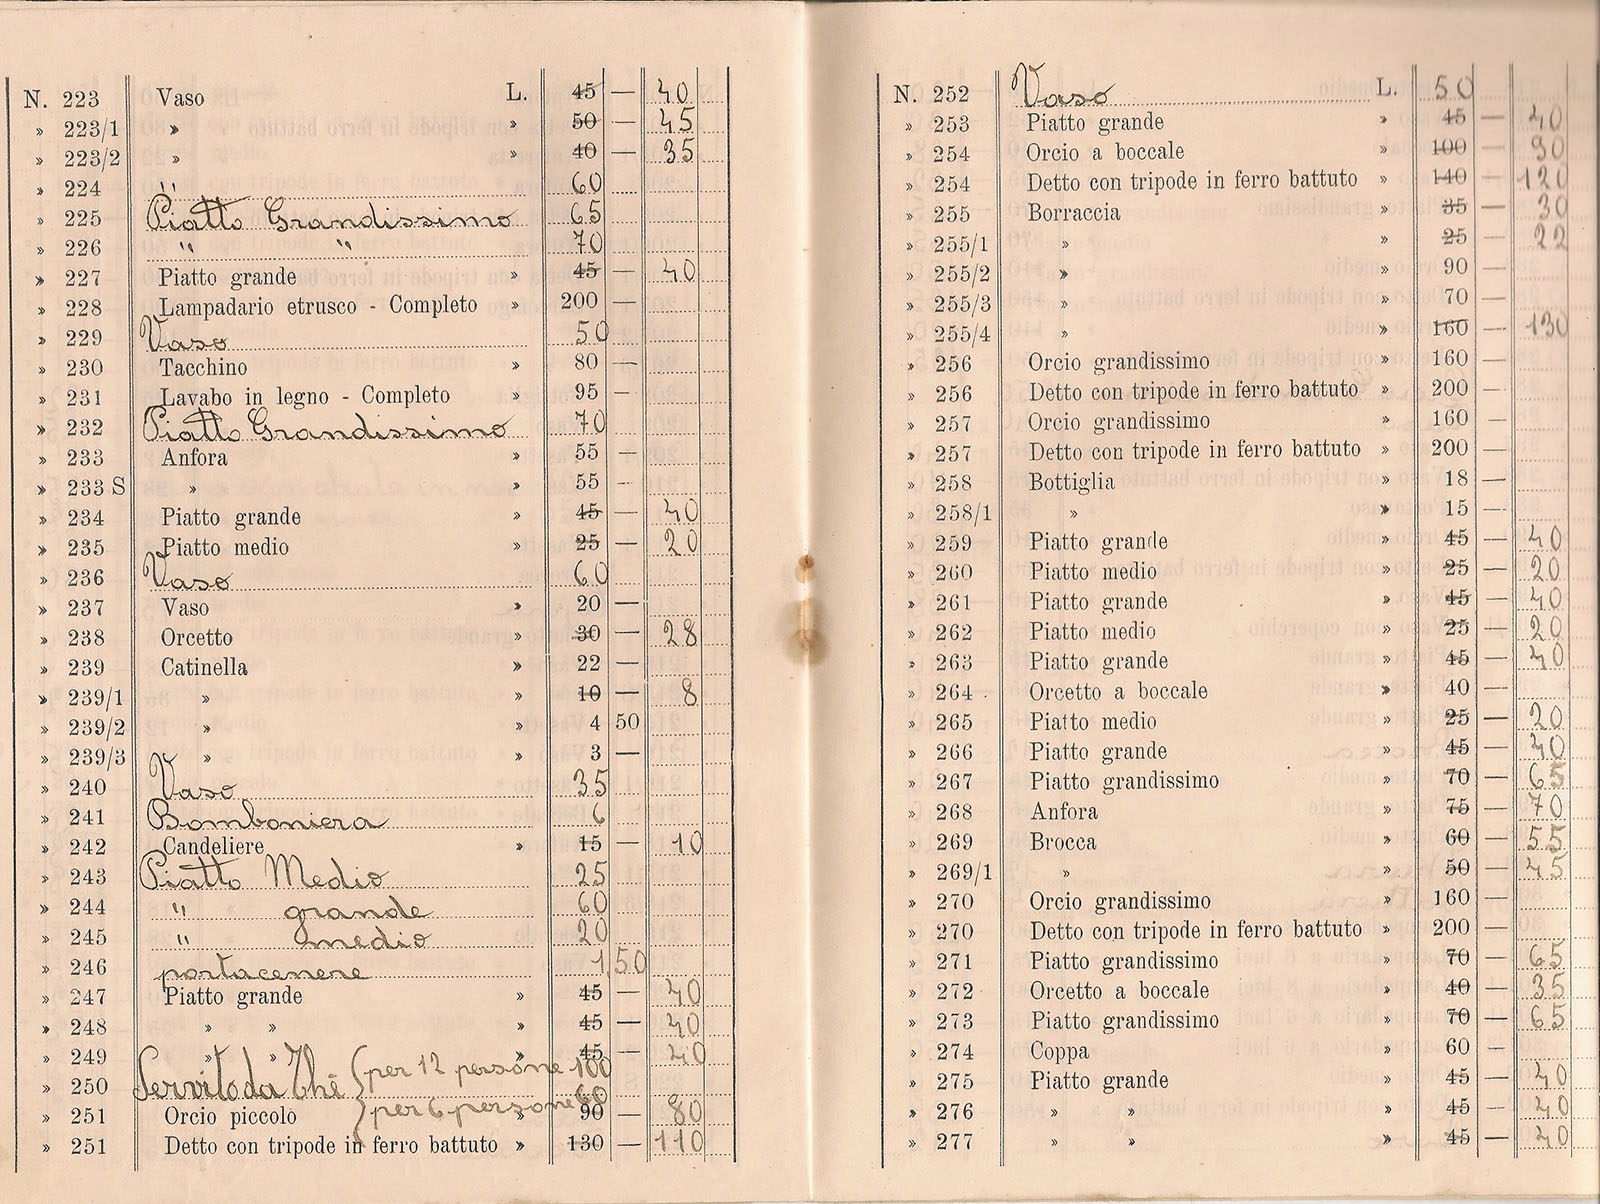 N. 223 Vaso L. 45 — 40
» 223/1 » » 50 — 45
» 223/2 » » 40 — 35
» 224 " 60
» 225 Piatto Grandissimo 65
» 226 " " 70
» 227 Piatto grande » 45 — 40
» 228 Lampadario etrusco - Completo » 200 —
» 229 Vaso 50
» 230 Tacchino » 80 —
» 231 Lavabo in legno - Completo » 95 -
» 232 Piatto Grandissimo 70
» 233 Anfora » 55 —
» 233 S » » 55 -
» 234 Piatto grande » 45 — 40
» 235 Piatto medio » 25 — 20
» 236 Vaso 60
» 237 Vaso » 20 —
» 238 Orcetto » 30 — 28
» 239 Catinella » 22 —
» 239/1 » » 10 — 8
» 239/2 » » 4 50
» 239/3 » » 3 —
» 240 Vaso 35
» 241 Bomboniera 6
» 242 Candeliere » 15 — 10
» 243 Piatto Medio 25
» 244 " grande 60
» 245 " medio 20
» 246 portacenere 1,50
» 247 Piatto grande » 45 — 40
» 248 » » » 45 — 40
» 249 » » » 45 — 40
» 250 Servito da Thè { per 12 persone 100
per 6 persone 60
» 251 Orcio piccolo 90 80
» 251 Detto con tripode in ferro battuto » 130 — 110
N. 252 Vaso L. 50
» 253 Piatto grande » 45 — 40
» 254 Orcio a boccale » 100 — 90
» 254 Detto con tripode in ferro battuto » 140 — 120
» 255 Borraccia » 35 — 30
» 255/1 » » 25 — 22
» 255/2 » » 90 —
» 255/3 » » 70 —
» 255/4 » » 160 — 130
» 256 Orcio grandissimo » 160 —
» 256 Detto con tripode in ferro battuto » 200 —
» 257 Orcio grandissimo » 160 —
» 257 Detto con tripode in ferro battuto » 200 —
» 258 Bottiglia » 18 —
» 258/1 » » 15 —
» 259 Piatto grande » 45 — 40
» 260 Piatto medio » 25 — 20
» 261 Piatto grande » 45 — 40
» 262 Piatto medio » 25 — 20
» 263 Piatto grande » 45 — 40
» 264 Orcetto a boccale » 40 —
» 265 Piatto medio » 25 — 20
» 266 Piatto grande » 45 — 40
» 267 Piatto grandissimo » 70 — 65
» 268 Anfora » 75 — 70
» 269 Brocca » 60 — 55
» 269/1 » » 50 — 45
» 270 Orcio grandissimo » 160 —
» 270 Detto con tripode in ferro battuto » 200 —
» 271 Piatto grandissimo » 70 — 65
» 272 Orcetto a boccale » 40 — 35
» 273 Piatto grandissimo » 70 — 65
» 274 Coppa » 60 —
» 275 Piatto grande » 45 — 40
» 276 » » » 45 — 40
» 277 » » » 45 — 40